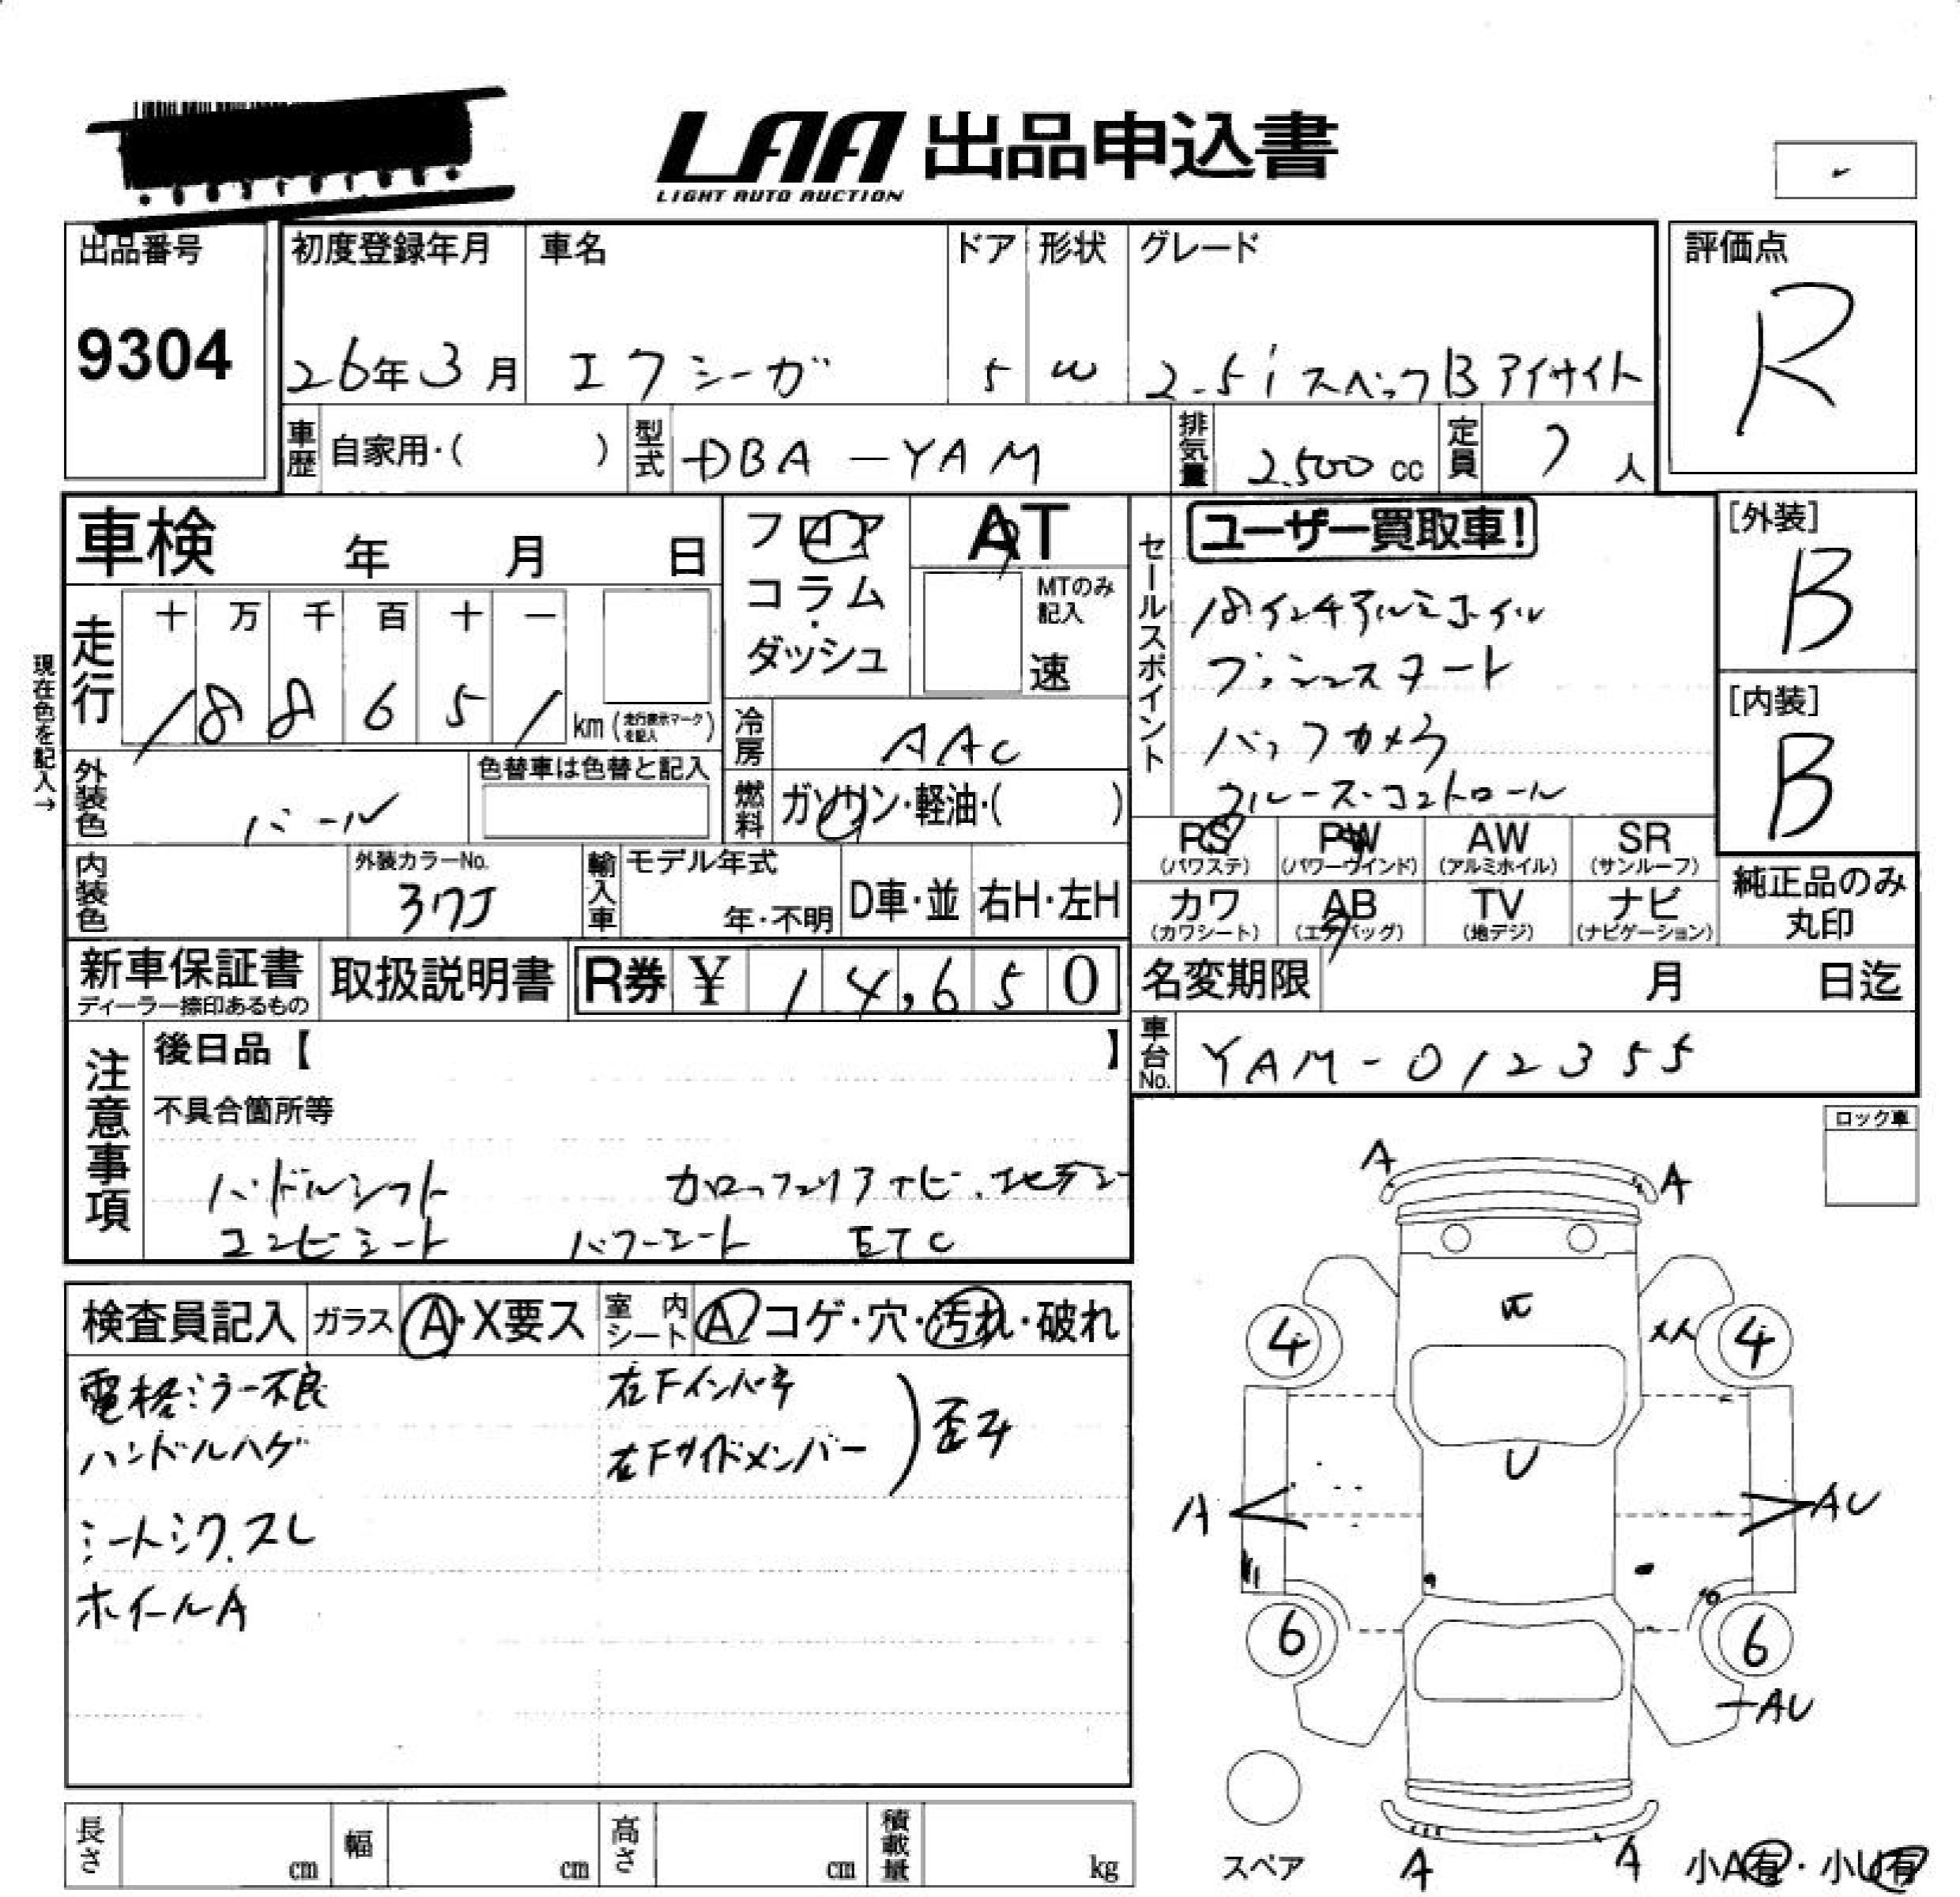 LAA 出品申込書
LIGHT AUTO AUCTION
出品番号
9304
初度登録年月
26年3月
車名
エクシーガ
ドア
5
形状
W
グレード
2.5i スペックB アイサイト
評価点
R
車歴
自家用・( )
型式
DBA-YAM
排気量
2.500 cc
定員
7人
車検 年 月 日
フロア
コラム
・
ダッシュ
AT
MTのみ
記入
速
セールスポイント
ユーザー買取車!
18インチアルミホイル
プッシュスタート
バックカメラ
クルーズ・コントロール
[外装]
B
[内装]
B
現在色を記入→
走行
十 万 千 百 十 一
1 8 8 6 5 1 km(走行表示マークを記入)
冷房
AAC
外装色
パール
色替車は色替と記入
燃料
ガソリン・軽油・( )
PS
(パワステ)
PW
(パワーウインド)
AW
(アルミホイル)
SR
(サンルーフ)
カワ
(カワシート)
AB
(エアバッグ)
TV
(地デジ)
ナビ
(ナビゲーション)
純正品のみ
丸印
内装色
外装カラーNo.
37J
輸入車
モデル年式
年・不明
D車・並
右H・左H
新車保証書
ディーラー捺印あるもの
取扱説明書
R券 ¥ 14,650
名変期限 月 日迄
車台No.
YAM-012355
注意事項
後日品【 】
不具合箇所等
パドルシフト カロッツェリアナビ.地デジ
コンビシート パワーシート ETC
ロック車
検査員記入
ガラス
A・X要ス
室内シート
A コゲ・穴・汚れ・破れ
電格ミラー不良
ハンドルハゲ
シートシワ、スレ
ホイールA
右Fインパネ
右Fサイドメンバー
歪み
A A
4 4
U
A AU
6 6
AU
スペア
A A
小A有・小U有
長さ cm
幅 cm
高さ cm
積載量 kg